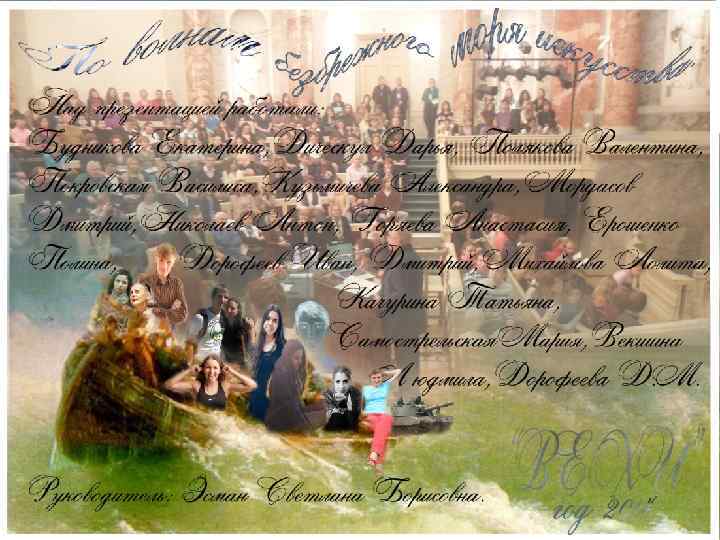 По волнам безбрежного моря искусства"
Над презентацией работали:
Будникова Екатерина, Дическул Дарья, Полякова Валентина,
Покровская Василиса, Кузьмичева Александра, Мордасов
Дмитрий, Николаев Антон, Горяева Анастасия, Ерошенко
Полина, Дорофеев Иван, Дмитрий, Михайлова Лолита,
Качурина Татьяна,
Самострельская Мария, Векшина
Людмила, Дорофеева Д.М.
"ВЕХИ"
Руководитель: Эсман Светлана Борисовна.
год